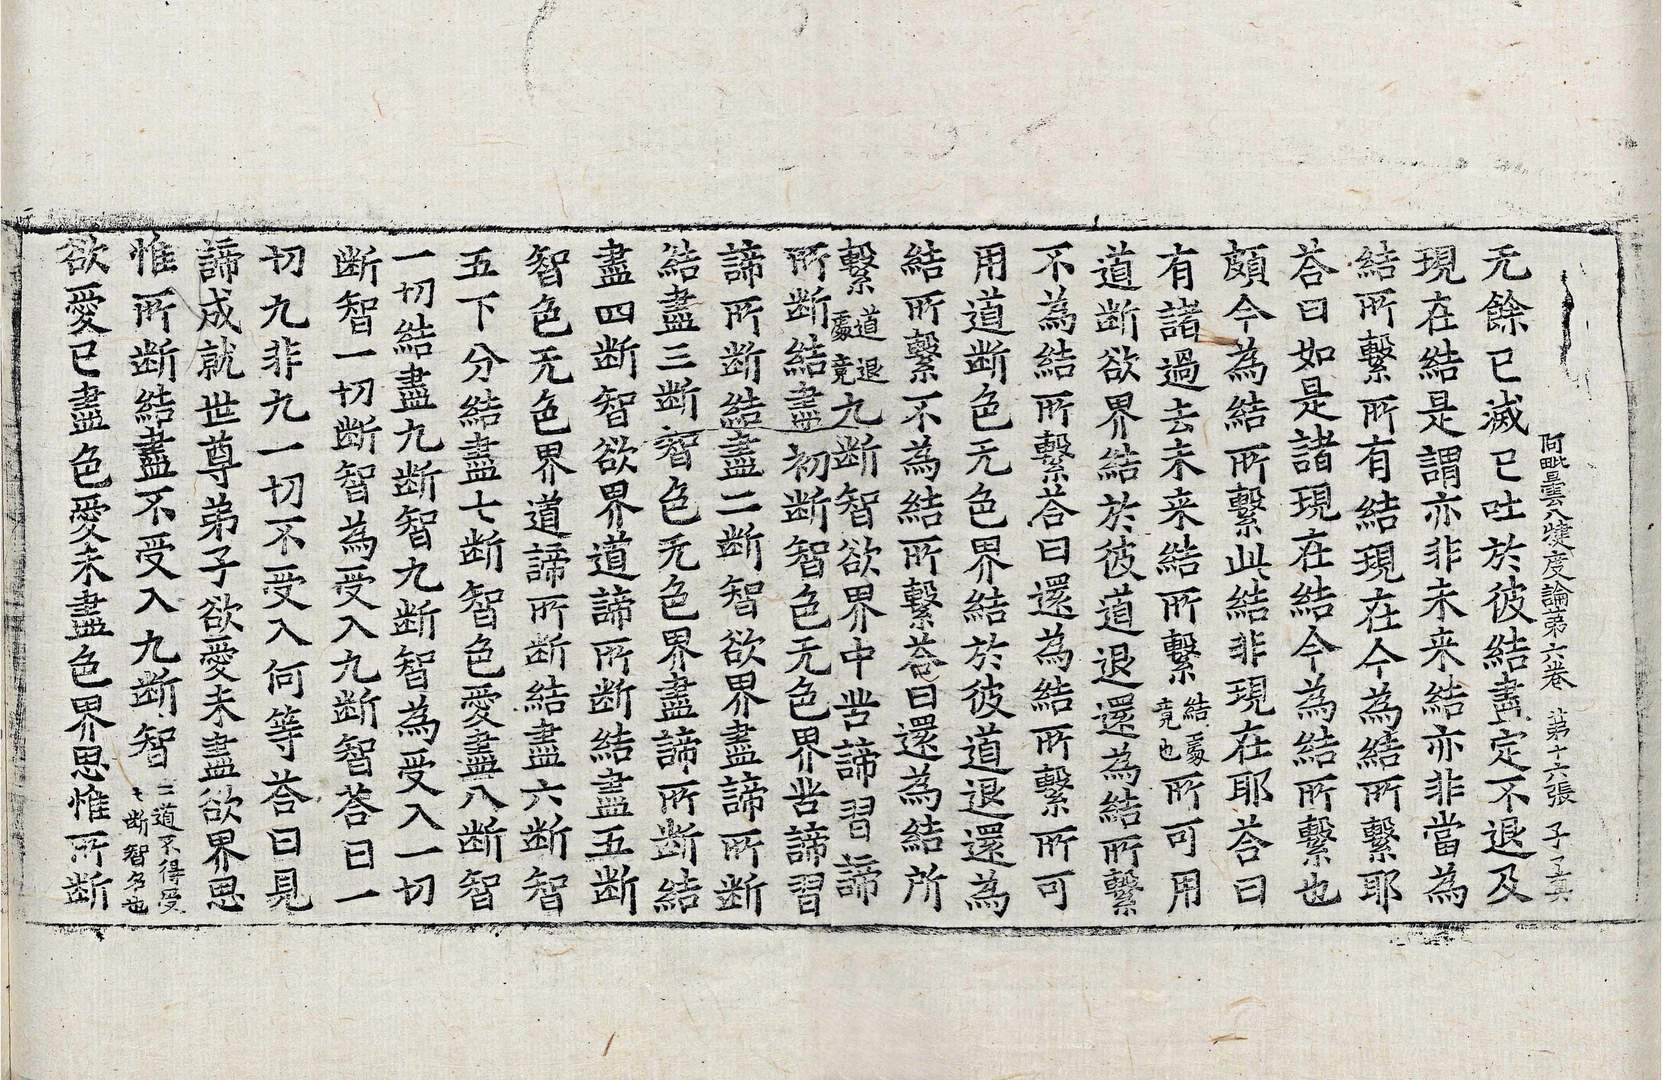 阿毗曇八犍度論第六卷　第十六張　子
无餘已滅已吐於彼結盡定不退及
現在結是謂亦非未来結亦非當為
結所繫所有結現在今為結所繫耶
荅曰如是諸現在結今為結所繫也
頗今為結所繫此結非現在耶荅曰
有諸過去未来結所繫結處竟也所可用
道断欲界結於彼道退還為結所繫
不為結所繫荅曰還為結所繫所可
用道断色无色界結於彼道退還為
結所繫不為結所繫荅曰還為結所
繫道退處竟九断智欲界中苦諦習諦
所断結盡初断智色无色界苦諦習
諦所断結盡二断智欲界盡諦所断
結盡三断智色无色界盡諦所断結
盡四断智欲界道諦所断結盡五断
智色无色界道諦所断結盡六断智
五下分結盡七断智色愛盡八断智
一切結盡九断智九断智為受入一切
断智一切断智為受入九断智荅曰一
切九非九一切不受入何等荅曰見
諦成就世尊弟子欲愛未盡欲界思
惟所断結盡不受入九断智二道不得受七断智名也
欲愛已盡色愛未盡色界思惟所断